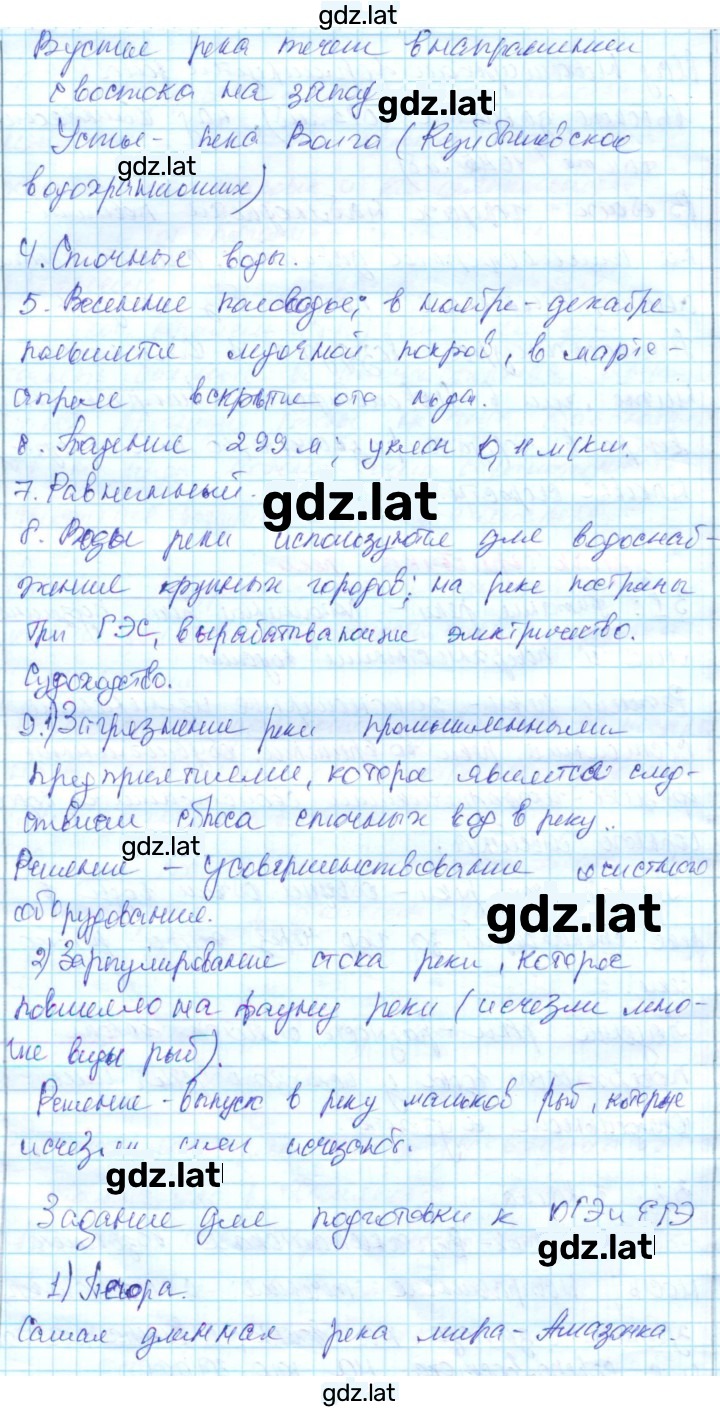 gdz.lat
В устье река течет в направлении
с востока на запад
gdz.lat
Устье - река Волга (Куйбышевское
gdz.lat
водохранилищ)
4. Сточные воды.
5. Весеннее половодье; в ноябре - декабре
появляется ледяной покров, в марте -
апреле вскрытие ото льда.
6. Падение - 299 м; уклон 0, м/км.
7. Равнинный.
gdz.lat
8. Воды реки используются для водоснаб-
жения крупных городов; на реке построены
три ГЭС, вырабатывающие электричество.
Судоходство.
9. 1) Загрязнение реки промышленными
предприятиями, которое является след-
ствием сброса сточных вод в реку.
gdz.lat
Решение - усовершенствование очистного
оборудования.
gdz.lat
2) Зарегулирование стока реки, которое
повлияло на фауну реки (исчезли мно-
гие виды рыб).
Решение - выпуск в реку мальков рыб, которые
исчезли или исчезают.
gdz.lat
Задание для подготовки к ОГЭ и ЕГЭ
gdz.lat
1) Печора.
Самая длинная река мира - Амазонка.
gdz.lat